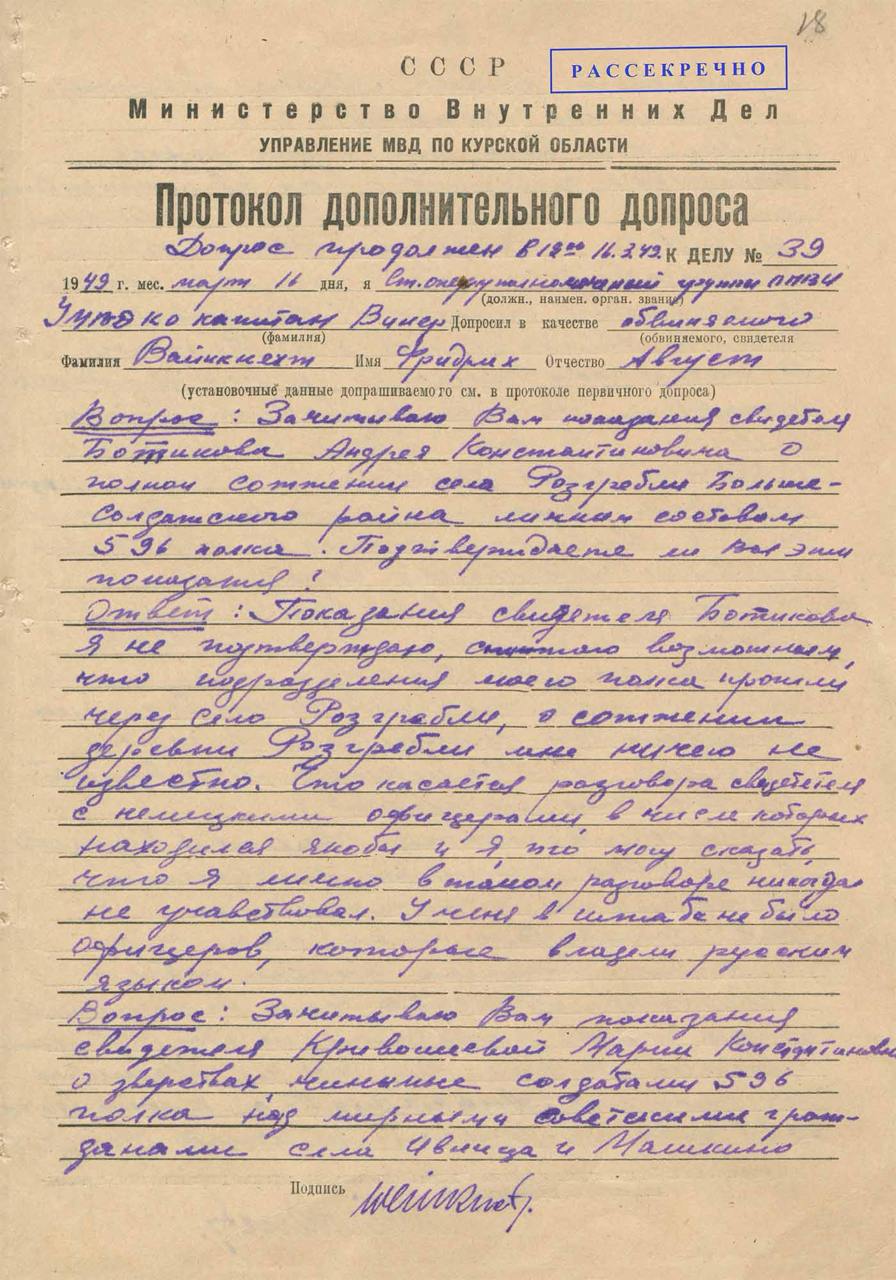 18
СССР
РАССЕКРЕЧНО
Министерство Внутренних Дел
УПРАВЛЕНИЕ МВД ПО КУРСКОЙ ОБЛАСТИ
Протокол дополнительного допроса
Допрос продолжен в 12 00 16.3.49. К ДЕЛУ № 39
1949 г. мес. март 16 дня, я Ст. оперуполномоченный группы
(должн., наимен. орган. звание)
капитан Винер Допросил в качестве обвиняемого
(фамилия) (обвиняемого, свидетеля
Фамилия Вайнкнехт Имя Фридрих Отчество Август
(установочные данные допрашиваемого см. в протоколе первичного допроса)
Вопрос: Зачитываю Вам показания свидетеля
Ботикова Андрея Константиновича о
полном сожжении села Розгребли Больше-
Солдатского района личным составом
596 полка. Подтверждаете ли Вы эти
показания?
Ответ: Показания свидетеля Ботикова
я не подтверждаю, возможным,
что подразделения моего полка прошли
через село Розгребли, о сожжении
деревни Розгребли мне ничего не
известно. Что касается разговора свидетеля
с немецкими офицерами, в числе которых
находился якобы и я, то могу сказать,
что я лично в таком разговоре никогда
не учавствовал. У меня в штабе не было
офицеров, которые владели русским
языком.
Вопрос: Зачитываю Вам показания
свидетеля Кривошеевой Марии Константиновны
о зверствах, солдатами 596
полка над мирными советскими граж-
данами села Ивница и Машкино
Подпись